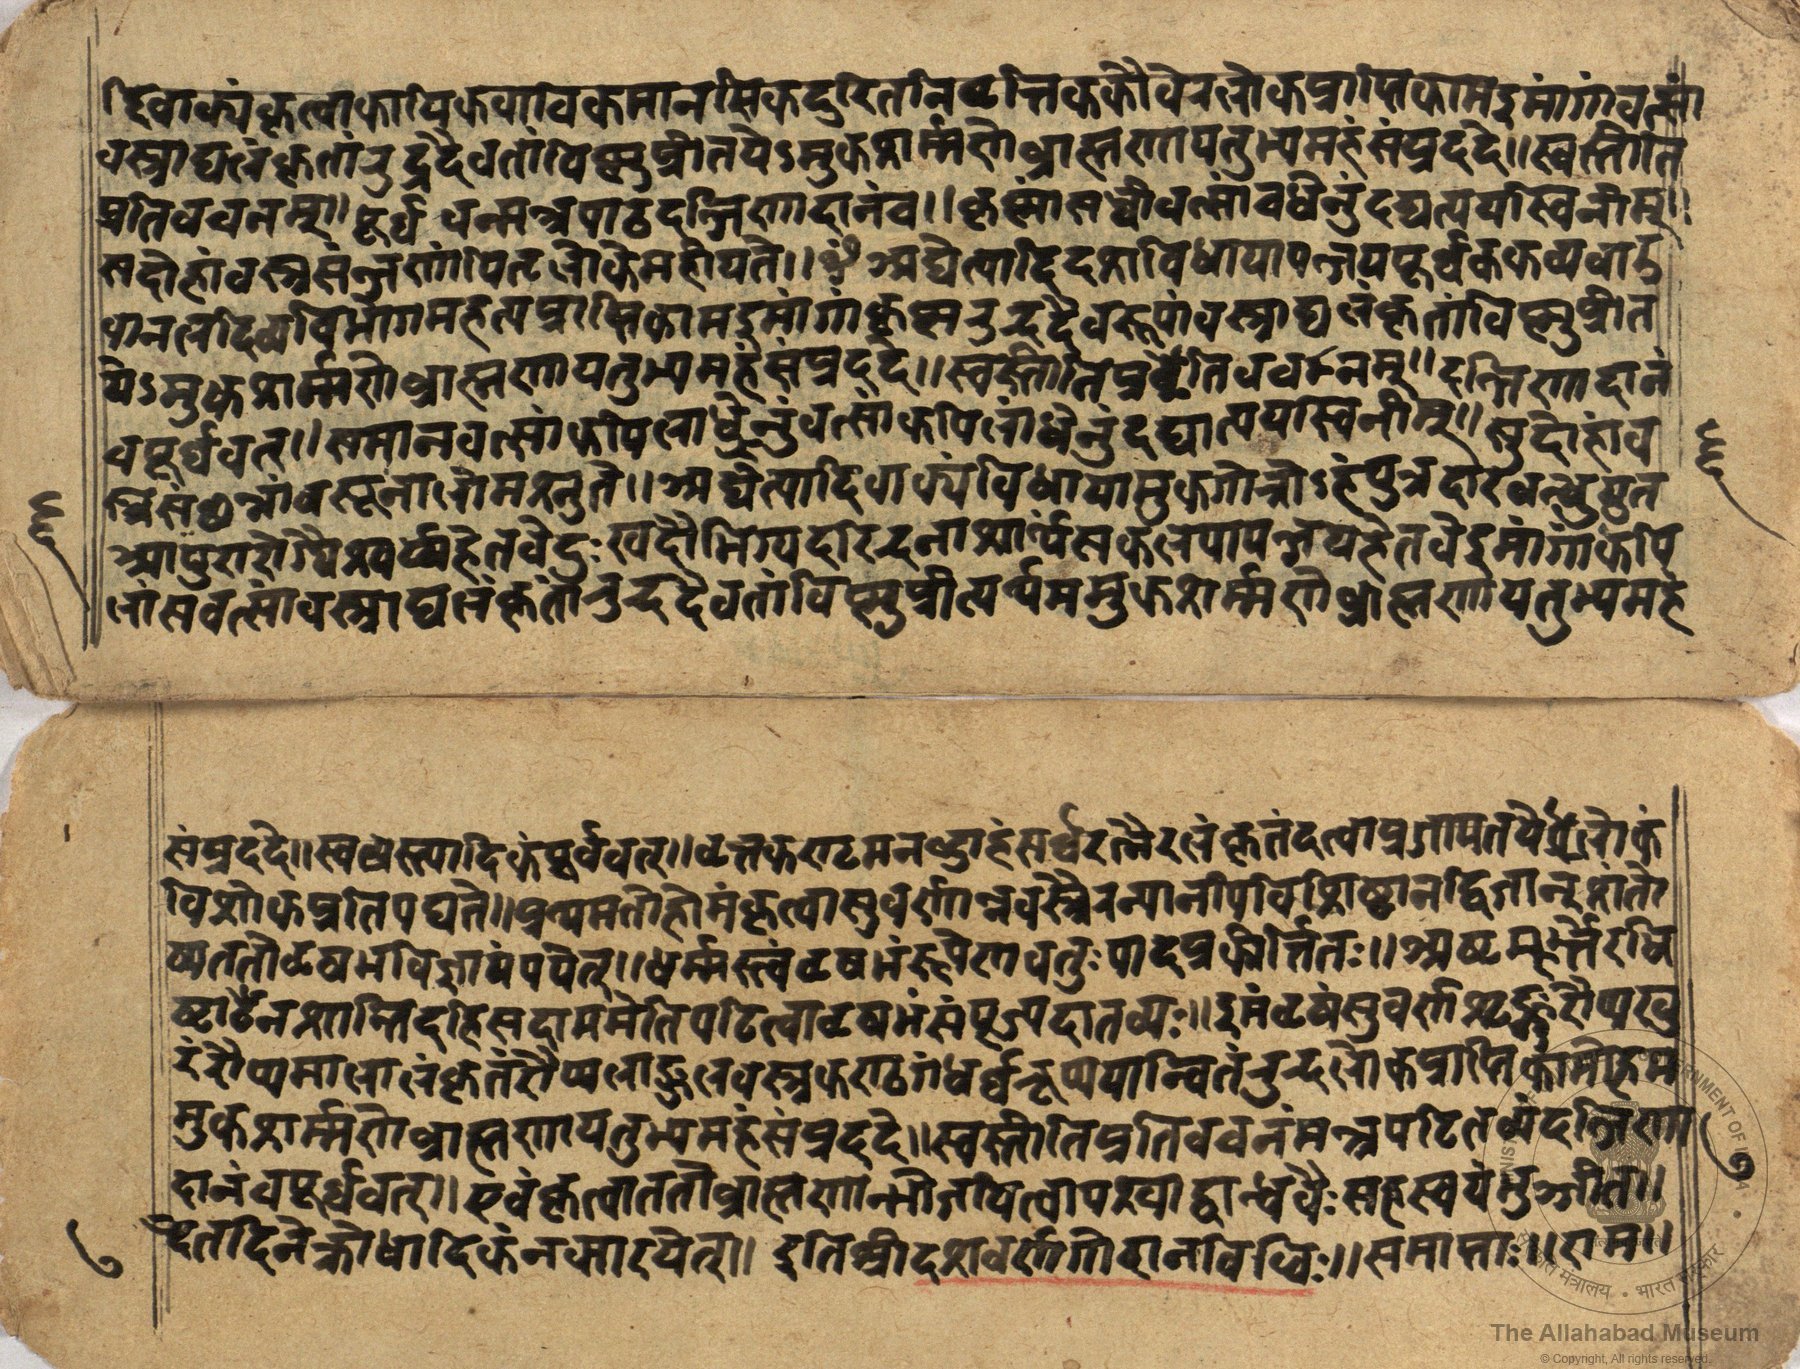 दिवाक्यं कृत्वा कायिकवाचिकमानसिकदुरितनिवृत्तिककौवेरलोकप्राप्तिकाम इमां गां वत्सां
वस्त्राद्यलंकृतां रुद्रदैवतां विष्णुप्रीतये ऽमुकशर्म्मणे ब्राह्मणाय तुभ्यमहं संप्रददे ॥ स्वस्तीति
प्रतिवचनम् ॥ पूर्व्ववन्मन्त्रपाठ दक्षिणादानं च ॥ कृष्णां सव्वीवत्सां च धेनुं दद्यात्पयस्विनीम् ॥
सदोहां वस्त्रसंज्ञणां पितृलोके महीयते ॥ ॐ अद्येत्यादि दशविधायापक्षयपूर्व्वक
नलदिव्यविर्भागमहत्यप्राप्तिकाम इमां गां कृष्णरुद्रदैवरूपां वस्त्राद्यलंकृतां विष्णुप्रीत
ये ऽमुकशर्म्मणे ब्राह्मणाय तुभ्यमहं संप्रददे ॥ स्वस्तीति प्रतिवचनम् ॥ दक्षिणादानं
च पूर्व्ववत् ॥ समानवत्सां कपिलां धेनुं वत्सां कपिलां धेनुं दद्यात्पयस्विनीम् ॥ सुदोहां व
अद्येत्यादि वाक्यं विधायामुकगोत्रो ऽहं पुत्रदारवन्धुयुत
आयुरारोग्यैश्वर्य्यहेतवे दुःखदौर्भाग्यदारिद्रनाशार्थं सकलपापक्षयहेतवे इमां गां कपि
लां सवत्सां वस्त्राद्यलंकृतां रुद्रदैवतां विष्णुप्रीत्यर्थममुकशर्म्मणे ब्राह्मणाय तुभ्यमहं
६
६
संप्रददे ॥ स्वस्त्यादिकं पूर्ववत् ॥ वृत्तकराटमनड्वाहं सर्व्वरत्नैरलंकृतं दत्वा प्रजापतये लोकं
विशोक प्रतिपद्यते ॥ प्रथमतो होमं कृत्वा सुवर्णान्नवस्त्रैरन्यानपि विशिष्टान् द्विजान्
ततो वृषभवि पठेत् ॥ धर्म्मस्त्वं वृषभंरूपेण चतुःपादप्रकीर्त्तितः ॥ अष्टमूर्त्तेरधि
ष्टानेन शान्तिं देहि सदा ममेति पठित्वा वृषभं संपूज्य दातव्यः ॥ इमं वृषं सुवर्णशृङ्गं रौप्यखु
रं रौप्यमालालंकृतं रौप्यलाङ्गुलवस्त्रकराठगंधर्व्वरूप्ययान्वितं रुद्रलोकप्राप्तिकामोहम
मुकशर्म्मणे ब्राह्मणाय तुभ्यमहं संप्रददे ॥ स्वस्तीति प्रतिवचनं मन्त्रपठितव्यं दक्षिणा
दानं च पूर्व्ववत् ॥ एवं कृत्वा ततो ब्राह्मणान्भोजयित्वा पश्चाद्बान्धवैः सह स्वयं भुञ्जीत ॥
एतद्दिने क्रोधादिकं न कारयेत् ॥ इति श्रीदशवर्णगोदानविधिः ॥ समाप्तः ॥ राम ॥
७
७
The Allahabad Museum
© Copyright, All rights reserved.